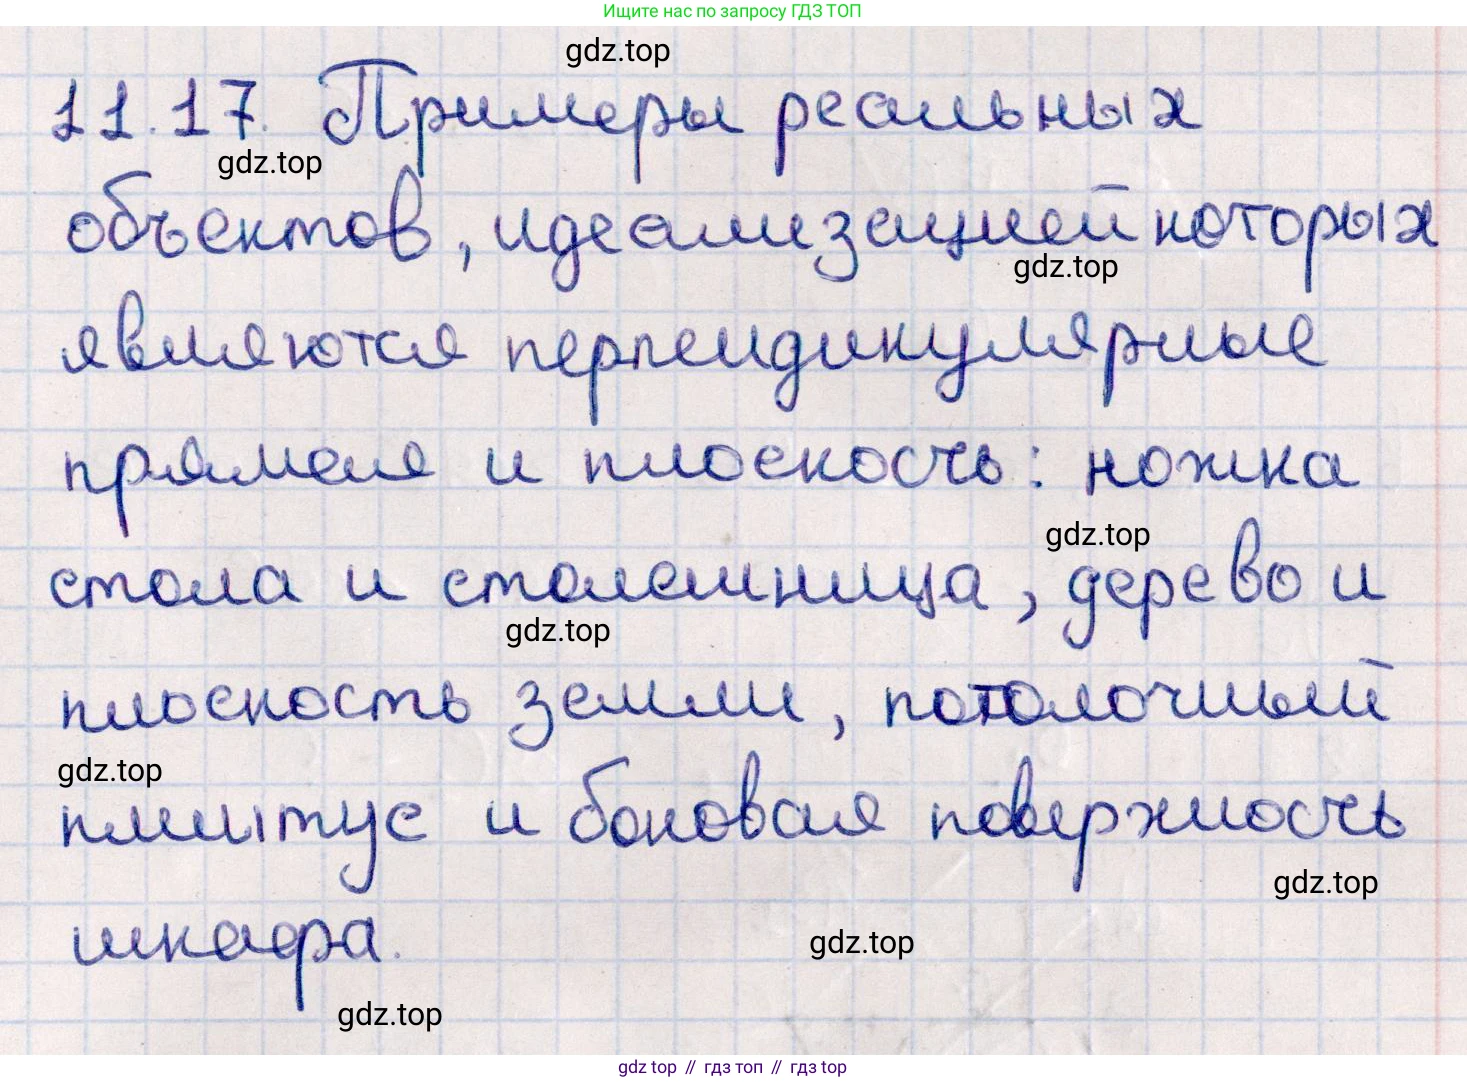 Ищите нас по запросу ГДЗ ТОП
gdz.top
11.17. Примеры реальных
gdz.top
объектов, идеализацией которых
gdz.top
являются перпендикулярные
прямая и плоскость: ножка
gdz.top
стола и столешница, дерево и
gdz.top
плоскость земли, потолочный
gdz.top
плинтус и боковая поверхность
gdz.top
шкафа.
gdz.top
gdz.top
gdz top // гдз топ // гдз top